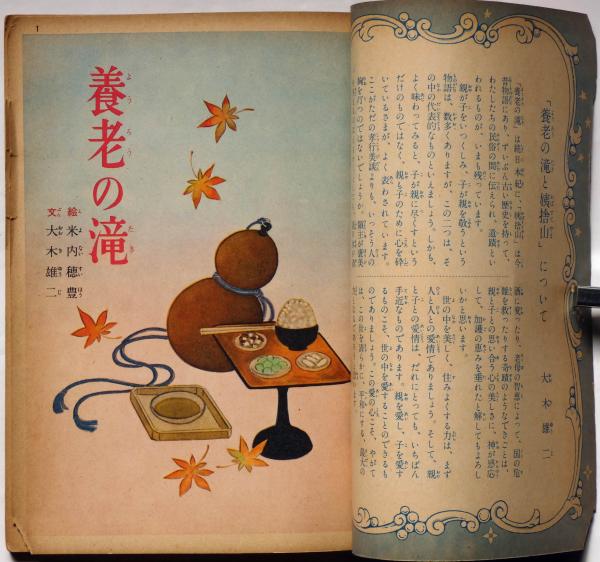 「養老の滝と姨捨山」について
大木雄二
「養老の滝」は続日本紀に、「姨捨山」は今
昔物語にあり、ずいぶん古い歴史を持って、
わたしたちの民俗の間に伝えられ、遺蹟とい
われるものが、いまも残っています。
親が子をいつくしみ、子が親を敬うという
物語は、数多くありますが、この二つは、そ
の中の代表的なものといえましょう。しかも、
よく味わってみると、子が親に尽くすという
だけのものではなく、親も子のために心を砕
いているさまが、よく表わされています。
ここがただの孝行美談よりも、いっそう人の
胸を打つのではないでしょうか。
酒に変ったり、老母の智恵によって、国の危
難を救ったりする奇蹟のようなできごとは、
親と子との思い合う心の美しさに、神が感応
して、加護の恵みを垂れたと解してもよろし
いかと思います。
世の中を美しく、住みよくする力は、まず
人と人との愛情でありましょう。そして、親
と子との愛情は、だれにとっても、いちばん
手近なものであります。親を愛し、子を愛す
るものこそ、世の中を愛することのできるも
のでありましょう。この愛の心こそ、やがて
は、この世を清らかに、平和にする、最大の
1
養老の滝
ようろうたき
絵 米内穂豊
よないすいほう
文 大木雄二
おおきゆうじ